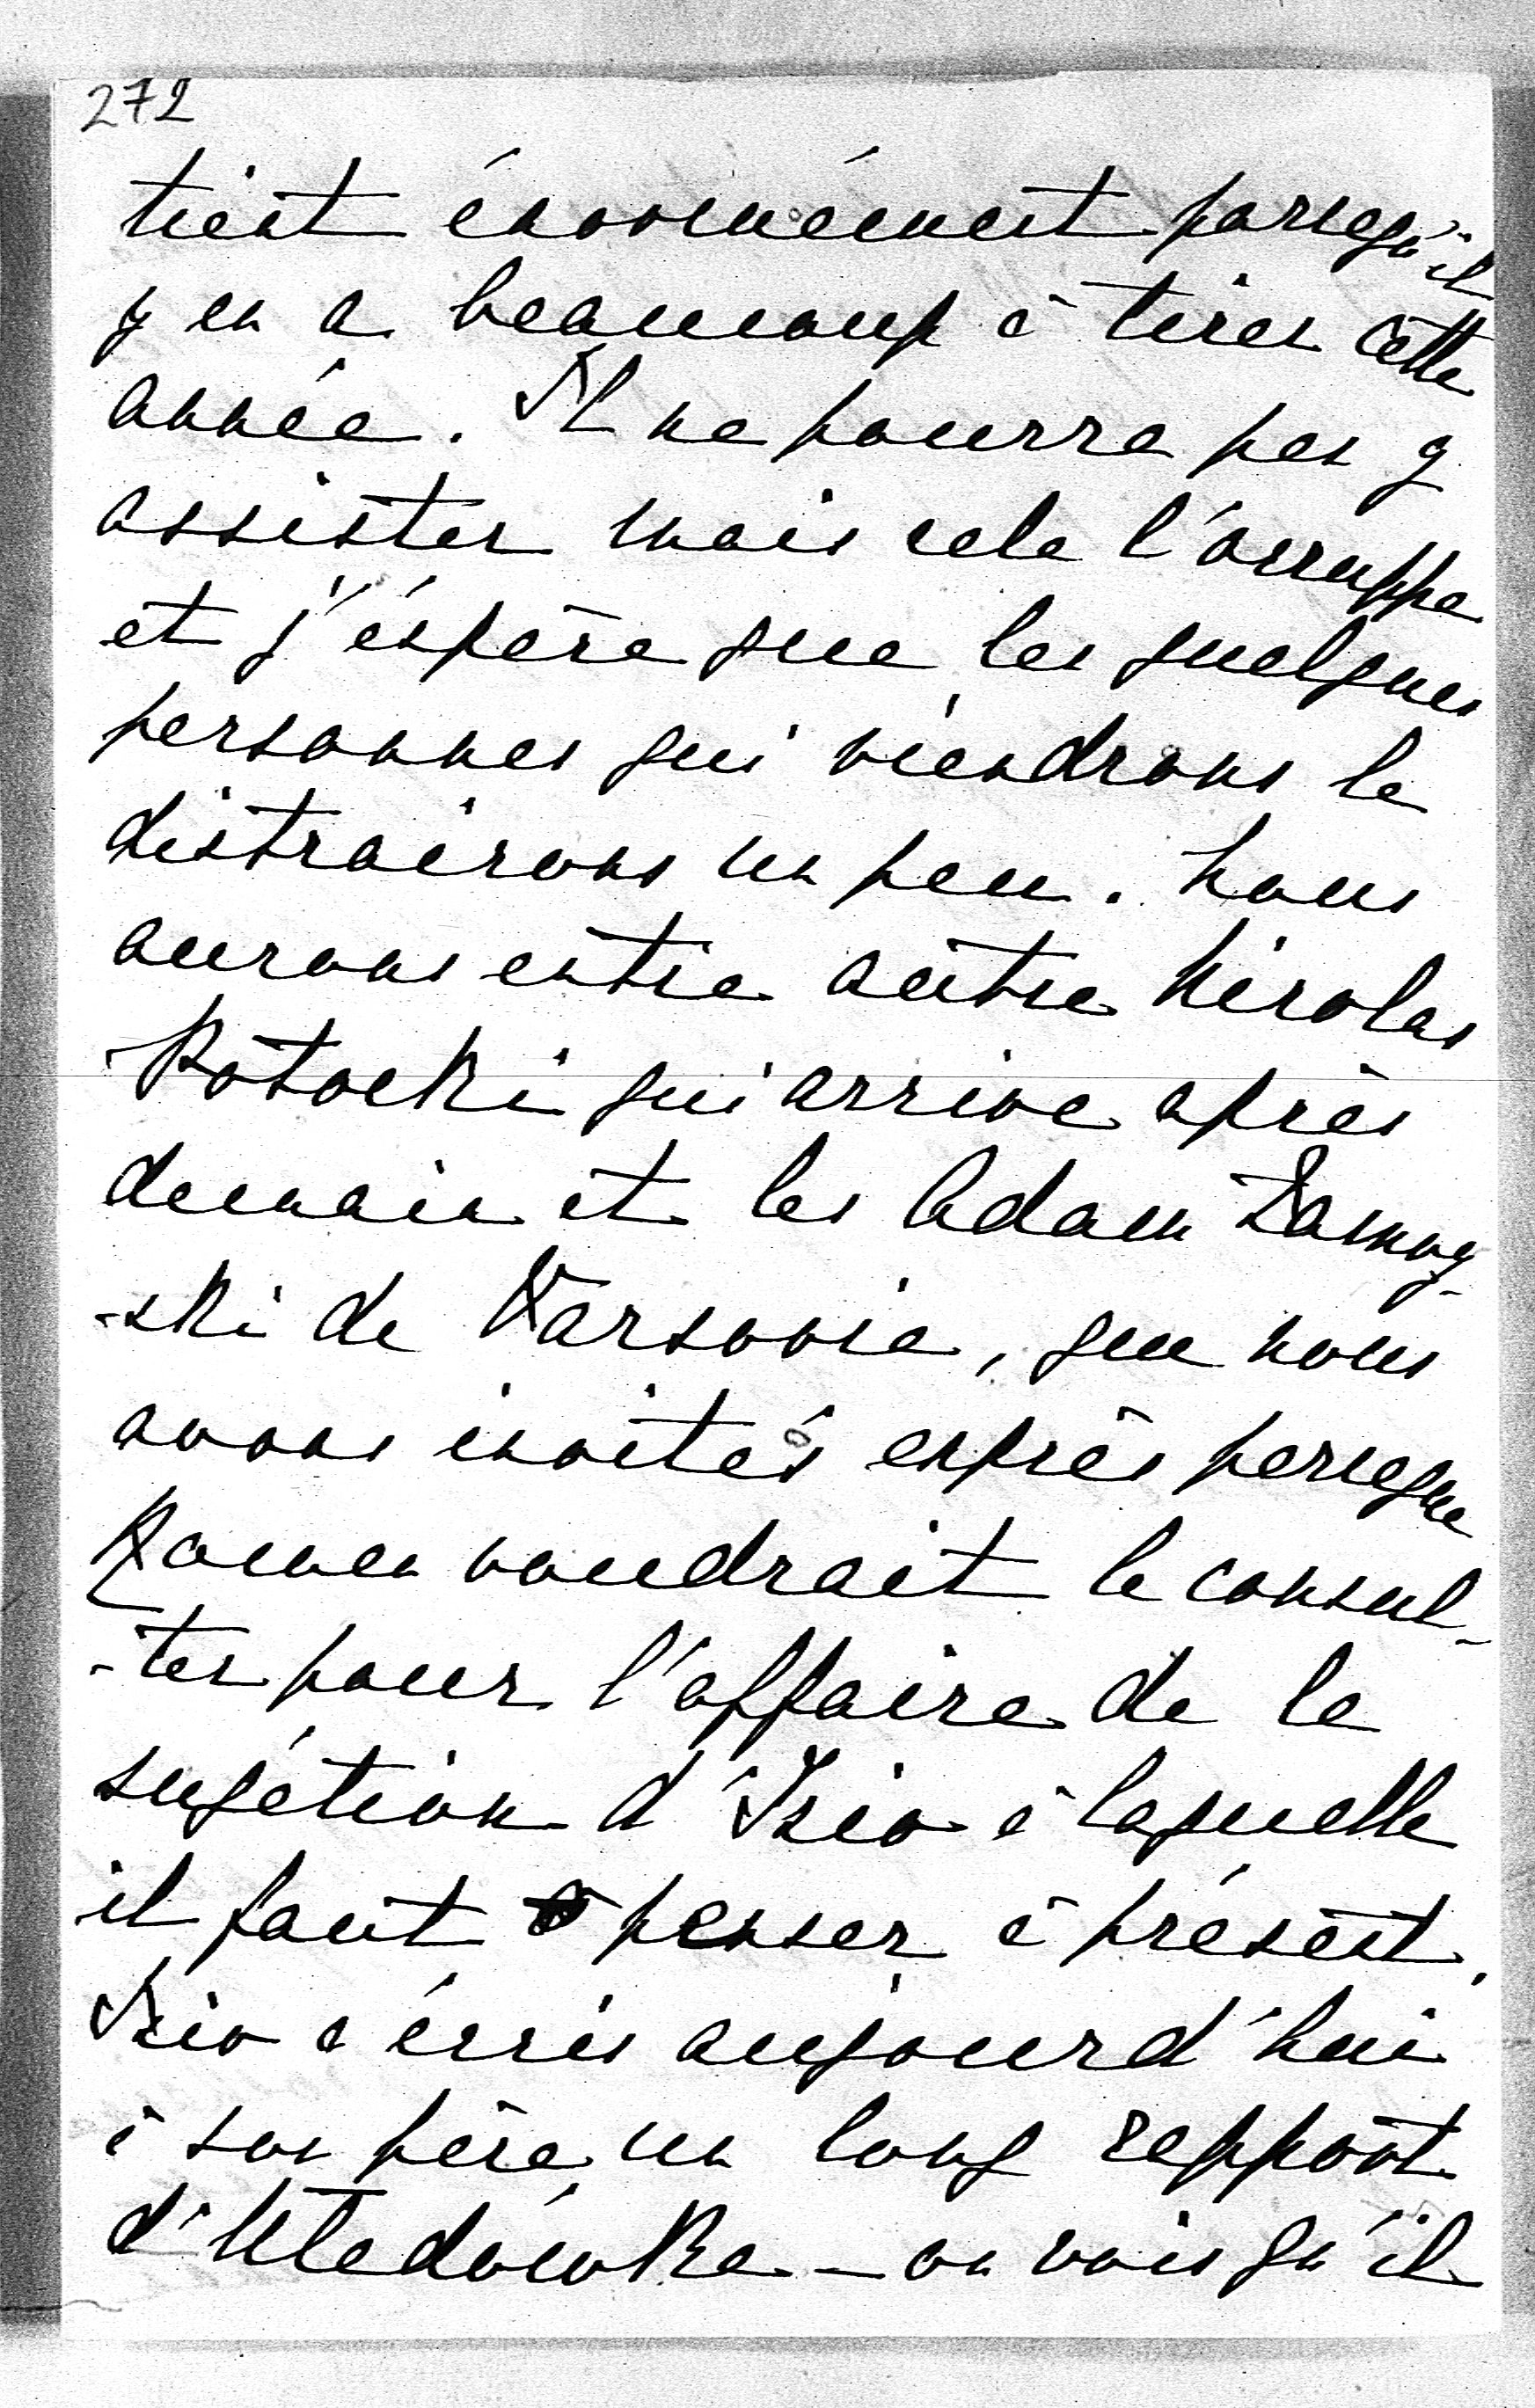 272
tient énormément parsequ'il
y en a beaucoup à tirer cette
année. Il ne pourra pas y
assister mais cela l'occuppe
et j'éspère que les quelques
personnes qui viendrons le
distrairons un peu. Nous
aurons entre autre Nicolas
Potocki qui arrive après
demain et les Adam Zamoy-
-ski de Varsovie, que nous
avons invités exprès parceque
Roman voudrait le consul-
-ter pour l'affaire de la
sujétion d'Izio à laquelle
il faut penser à présent.
Izio a écris aujourd'hui
à son père un long rapport
d'Uładówka – on vois qu'il